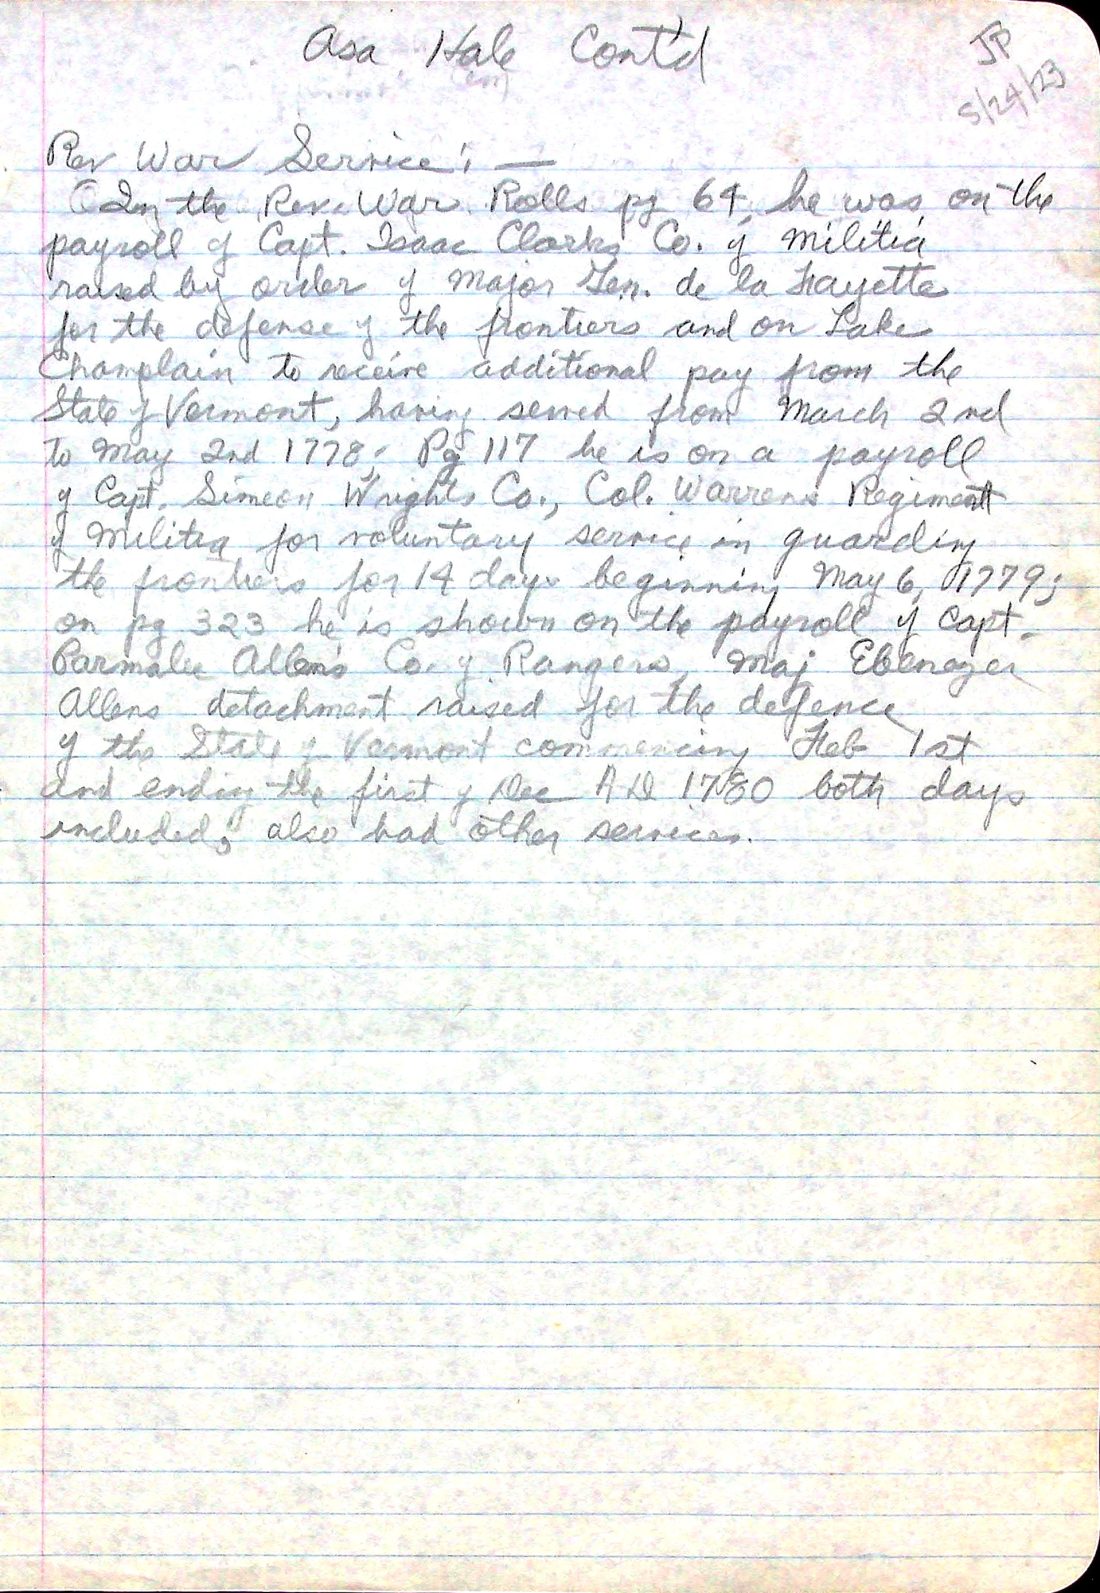 Asa Hale Cont'd
JP
5/24/23
Rev War Service: —
In the Rev. War Rolls pg 64, he was on the
payroll of Capt. Isaac Clarks Co. of Militia
raised by order of Major Gen. de la Fayette
for the defense of the frontiers and on Lake
Champlain to receive additional pay from the
State of Vermont, having served from March 2nd
to May 2nd 1778; Pg 117 he is on a payroll
of Capt. Simeon Wrights Co., Col. Warrens Regiment
of Militia for voluntary service in guarding
the frontiers for 14 days beginning May 6, 1779;
on pg 323 he is shown on the payroll of Capt.
Parmalee Allens Co. of Rangers, Maj Ebenezer
Allens detachment raised for the defence
of the State of Vermont commencing Feb 1st
and ending the first of Dec A D 1780 both days
included; also had other services.